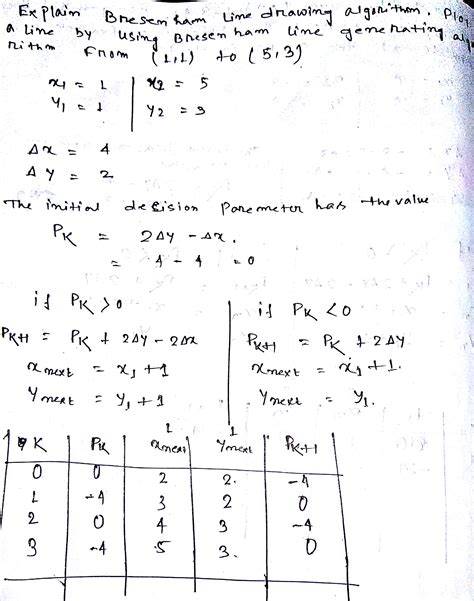 Explain Bresenham Line drawing algorithm. Plo
a line by using Bresenham line generating al
rithm from (1,1) to (5,3)
x1 = 1 | x2 = 5
y1 = 1 | y2 = 3
Δx = 4
Δy = 2
The initial decision Paremeter has the value
PK = 2Δy - Δx.
= 4 - 4 = 0
if PK > 0 | if PK < 0
PK+1 = PK + 2Δy - 2Δx | PK+1 = PK + 2Δy
xnext = x1 + 1 | xnext = x1 + 1.
Ynext = y1 + 1 | Ynext = y1.
1 1
K | PK | xnext | Ynext | PK+1
0 | 0 | 2 | 2. | -4
1 | -4 | 3 | 2 | 0
2 | 0 | 4 | 3 | -4
3 | -4 | 5 | 3. | 0